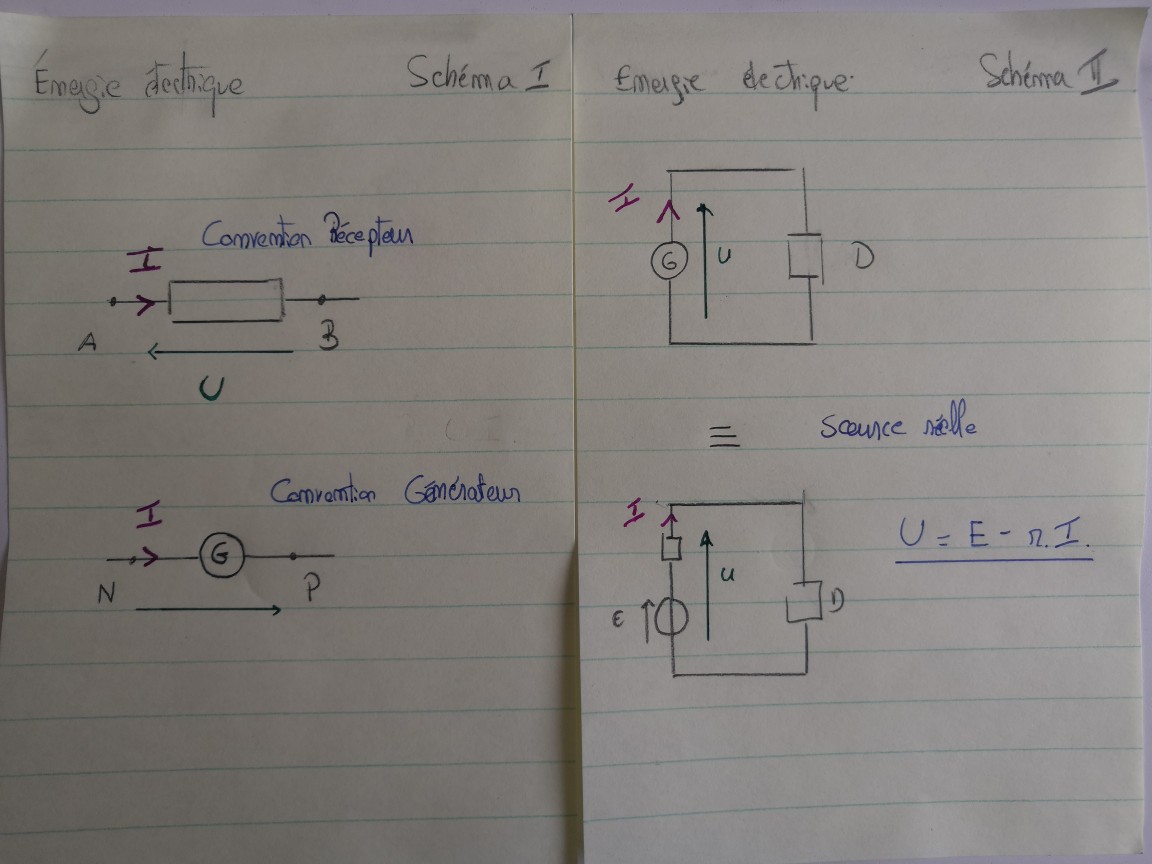 Énergie électrique Schéma I
Convention Récepteur
I
A B
U
Convention Générateur
I
G
N P
Energie électrique. Schéma II
I
G U D
≡ Source réelle
I
U = E - r.I.
U
E D